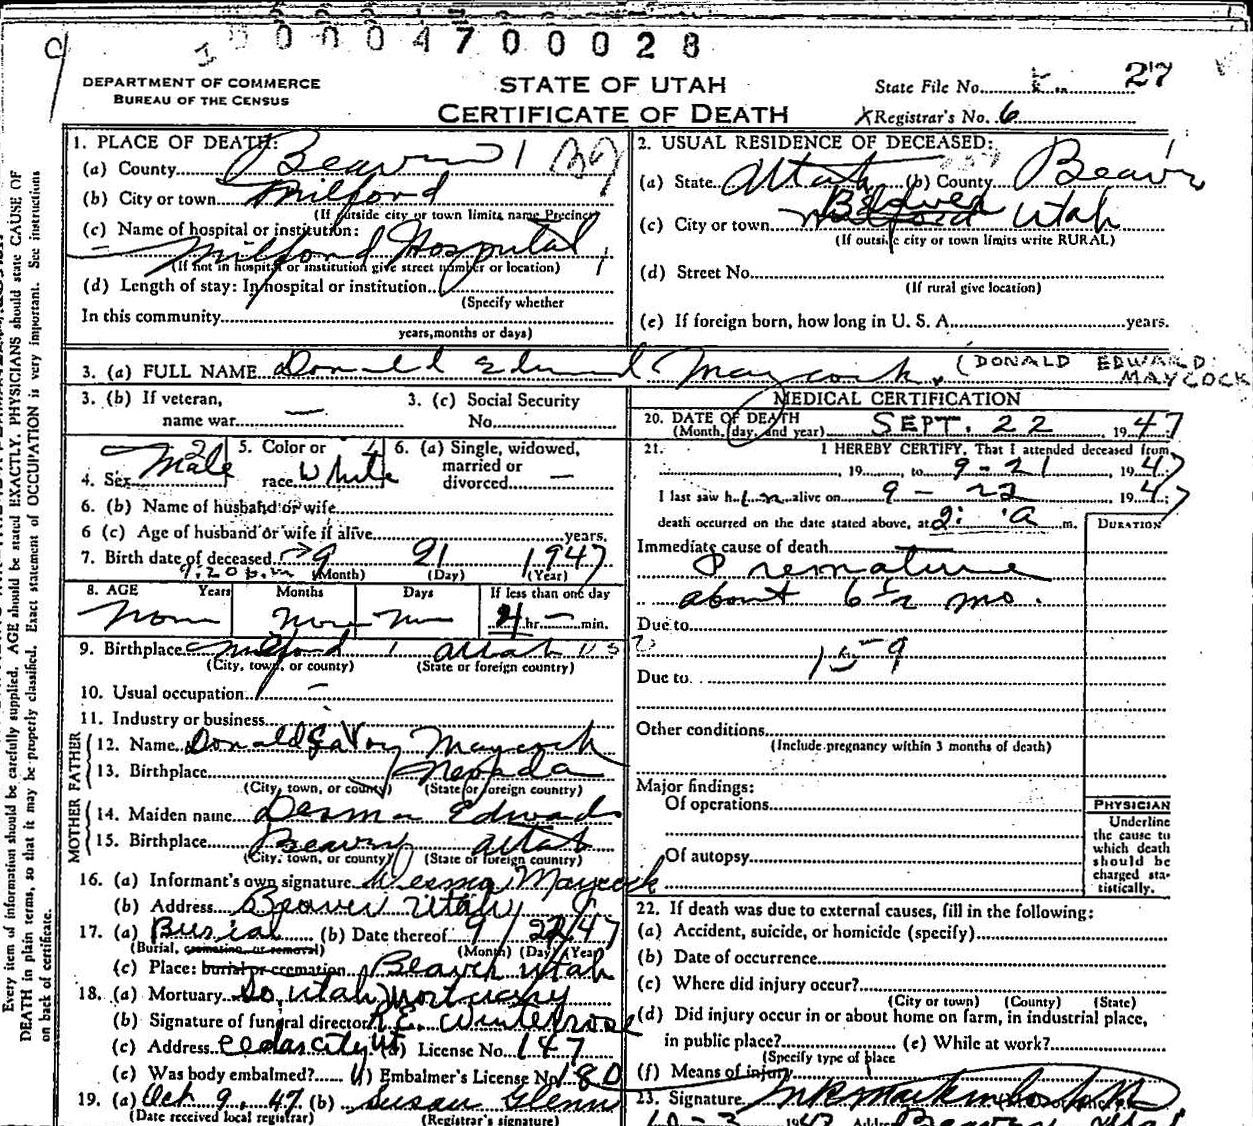 0 0 0 4 7 0 0 0 2 8
DEPARTMENT OF COMMERCE
BUREAU OF THE CENSUS
STATE OF UTAH
CERTIFICATE OF DEATH
State File No. 27
Registrar's No. 6
1. PLACE OF DEATH:
(a) County Beaver
(b) City or town Milford
(If outside city or town limits name Precinct)
(c) Name of hospital or institution:
Milford Hospital
(If not in hospital or institution give street number or location)
(d) Length of stay: In hospital or institution
(Specify whether
In this community
years, months or days)
2. USUAL RESIDENCE OF DECEASED:
(a) State Utah (b) County Beaver
Beaver
(c) City or town Milford Utah
(If outside city or town limits write RURAL)
(d) Street No.
(If rural give location)
(e) If foreign born, how long in U. S. A. years.
3. (a) FULL NAME Donald Edward Maycock (DONALD EDWARD
MAYCOCK
3. (b) If veteran,
name war —
3. (c) Social Security
No.
4. Sex Male
5. Color or
race White
6. (a) Single, widowed,
married or
divorced —
6. (b) Name of husband or wife
6 (c) Age of husband or wife if alive years.
7. Birth date of deceased 9 21 1947
9:20 p.m (Month) (Day) (Year)
8. AGE Years Months Days If less than one day
4 hr. — min.
9. Birthplace Milford Utah US
(City, town, or county) (State or foreign country)
10. Usual occupation —
11. Industry or business
FATHER
12. Name Donald LaVoy Maycock
13. Birthplace Nevada
(City, town, or county) (State or foreign country)
MOTHER
14. Maiden name Desma Edwards
15. Birthplace Beaver Utah
(City, town, or county) (State or foreign country)
16. (a) Informant's own signature Desma Maycock
(b) Address Beaver Utah
17. (a) Burial (b) Date thereof 9/22/47
(Burial, cremation, or removal) (Month) (Day) (Year)
(c) Place: burial or cremation Beaver Utah
18. (a) Mortuary So. Utah Mortuary
(b) Signature of funeral director R.E. Winterrose
(c) Address Cedar City Ut (d) License No. 147
(e) Was body embalmed? (f) Embalmer's License No. 180
19. (a) Oct 9, 47 (b) Susan Glenn
(Date received local registrar) (Registrar's signature)
MEDICAL CERTIFICATION
20. DATE OF DEATH
(Month, day, and year) SEPT. 22 1947
21. I HEREBY CERTIFY, That I attended deceased from
19 to 9-21 1947
I last saw him alive on 9 - 22 1947
death occurred on the date stated above, at 2: a m.
DURATION
Immediate cause of death
Premature
about 6½ mo.
Due to
159
Due to
Other conditions
(Include pregnancy within 3 months of death)
Major findings:
Of operations
Of autopsy
PHYSICIAN
Underline
the cause to
which death
should be
charged sta-
tistically.
22. If death was due to external causes, fill in the following:
(a) Accident, suicide, or homicide (specify)
(b) Date of occurrence
(c) Where did injury occur?
(City or town) (County) (State)
(d) Did injury occur in or about home on farm, in industrial place,
in public place? (e) While at work?
(Specify type of place
(f) Means of injury
23. Signature
Every item of information should be carefully supplied. AGE should be stated EXACTLY. PHYSICIANS should state CAUSE OF
DEATH in plain terms, so that it may be properly classified. Exact statement of OCCUPATION is very important. See instructions
on back of certificate.